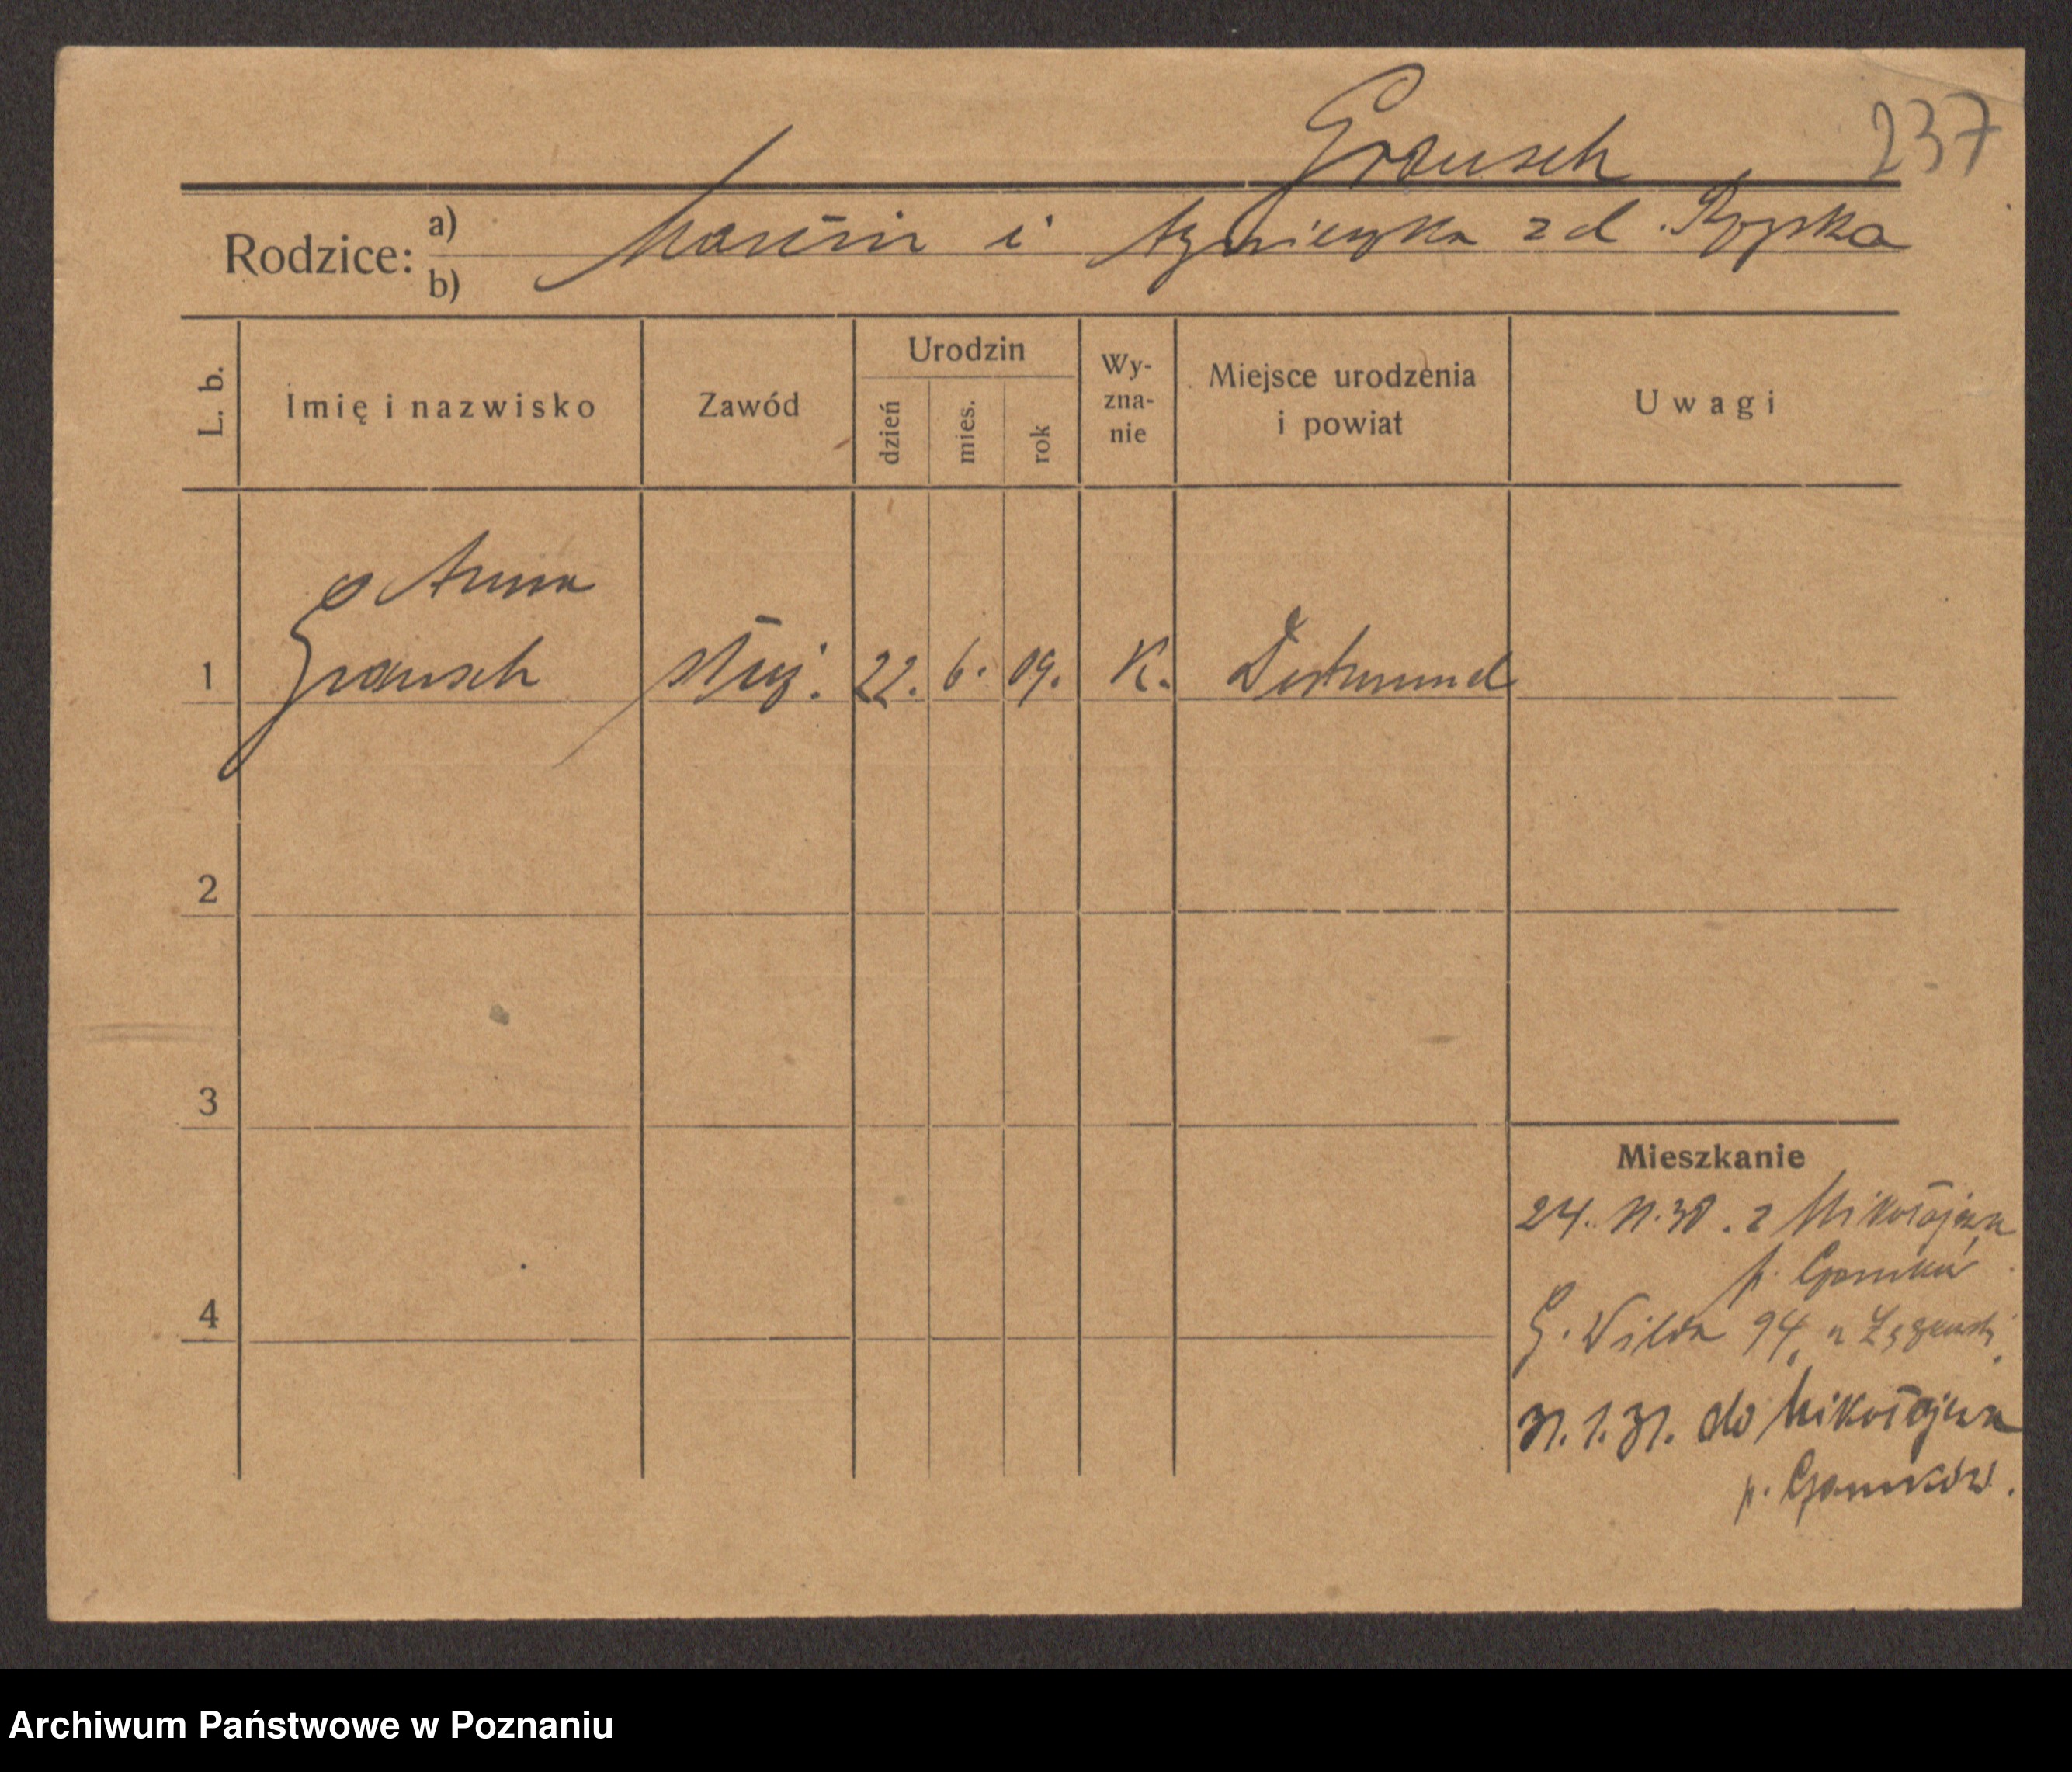 Grausch 237
Rodzice: a) Marcin i Agnieszka z d.
b)
L. b. Imię i nazwisko Zawód Urodzin dzień mies. rok Wy-zna-nie Miejsce urodzenia i powiat Uwagi
Anna
1 Grausch służ. 22. 6. 09. K. Dortmund
2
3
Mieszkanie
24. 11. 30. z Mikołajewa
p. Czarnków
4
G. Wilda 94, u
31. 1. 31. do Mikołajewa
p. Czarnków.
Archiwum Państwowe w Poznaniu